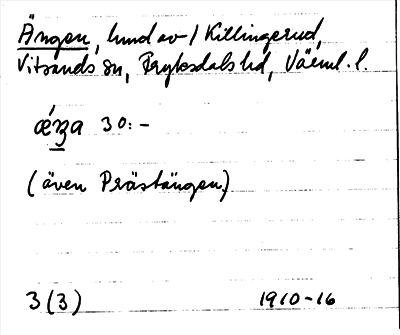 Ängen, hmd av 1 Killingerud,
Vitsands sn, Fryksdals hd, Värml. l.
ǽʒa 30:-
(även Prästängen)
3 (3) 1910-16